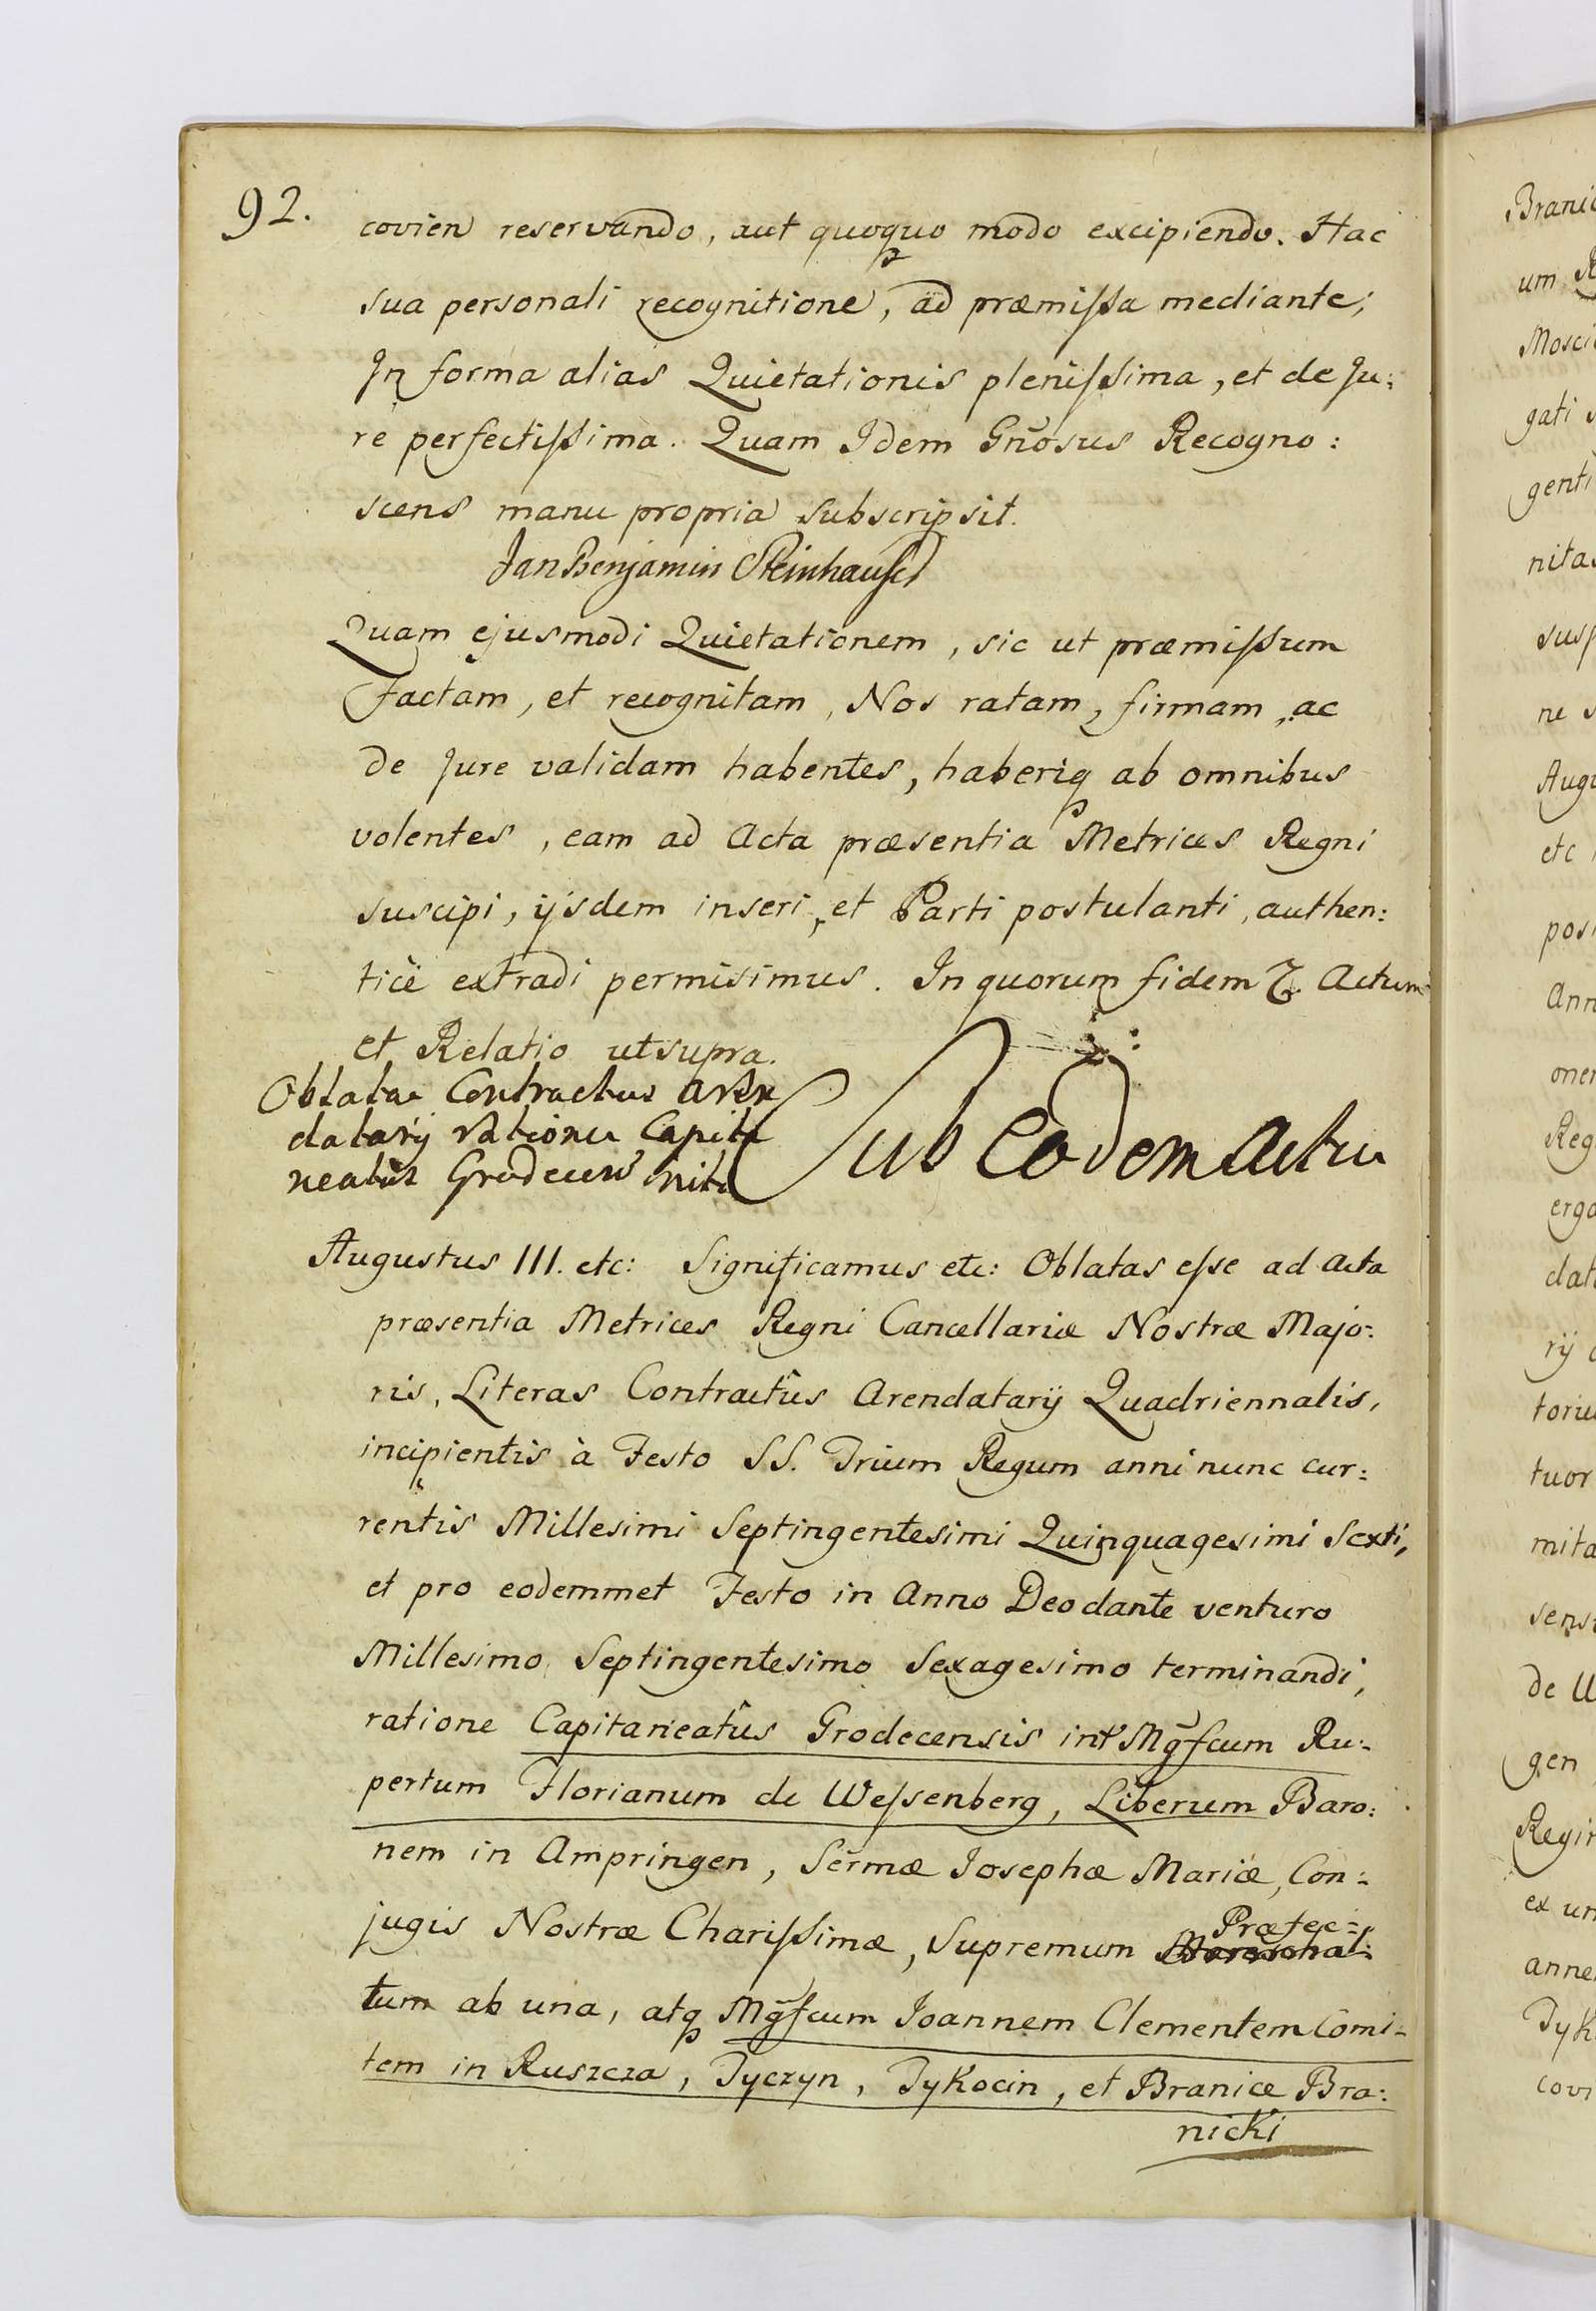 92.
covien reservando, aut quoquo modo excipiendo. Hac
sua personali recognitione, ad præmiſsa mediante;
In forma alias Quietationis pleniſsima, et de Ju:
re perfectiſsima. Quam Idem Gn̄osus Recogno:
scens manu propria subscripsit.
Jan Benjamin Steinhauſer
Quam ejusmodi Quietationem, sic ut præmiſsum
Factam, et recognitam, Nos ratam, firmam, ac
de Jure validam habentes, haberiq ab omnibus
volentes, eam ad Acta præsentia Metrices Regni
suscipi, ijsdem inseri, et Parti postulanti, authen:
ticè extradi permisimus. In quorum fidem Actum
et Relatio ut supra.
Oblatae Contractus Aren
datarij rationer Capita
neatûs Grodecen
Sub Eodem Actu
Augustus III. etc: Significamus etc: Oblatas eſse ad Acta
præsentia Metrices Regni Cancellariæ Nostræ Majo:
ris, Literas Contractûs Arendatarij Quadriennalis,
incipientis à Festo SS. Trium Regum anni nunc cur:
rentis Millesimi Septingentesimi Quinquagesimi Sexti,
et pro eodemmet Festo in Anno Deo dante venturo
Millesimo Septingentesimo Sexagesimo terminandi,
ratione Capitaneatûs Grodecensis intr Mg̃fcum Ru:
pertum Florianum de Weſsenberg, Liberum Baro:
nem in Ampringen, Ser̃mæ Josephæ Mariæ, Con:
jugis Nostræ Chariſsimæ, Supremum Præfec:
tum ab una, atq Mg̃fcum Joannem Clementem Comi:
tem in Ruszcza, Tyczyn, Tykocin, et Branice Bra:
nicki
Branic
um R
Mosci
gati
genti
nita
susp
ne
Augu
etc
posi
Ann
oner
Reg
erga
dat
rij
toriu
tuor
mita
sens
de W
gen
Regin
ex un
anne
Tyk
covi